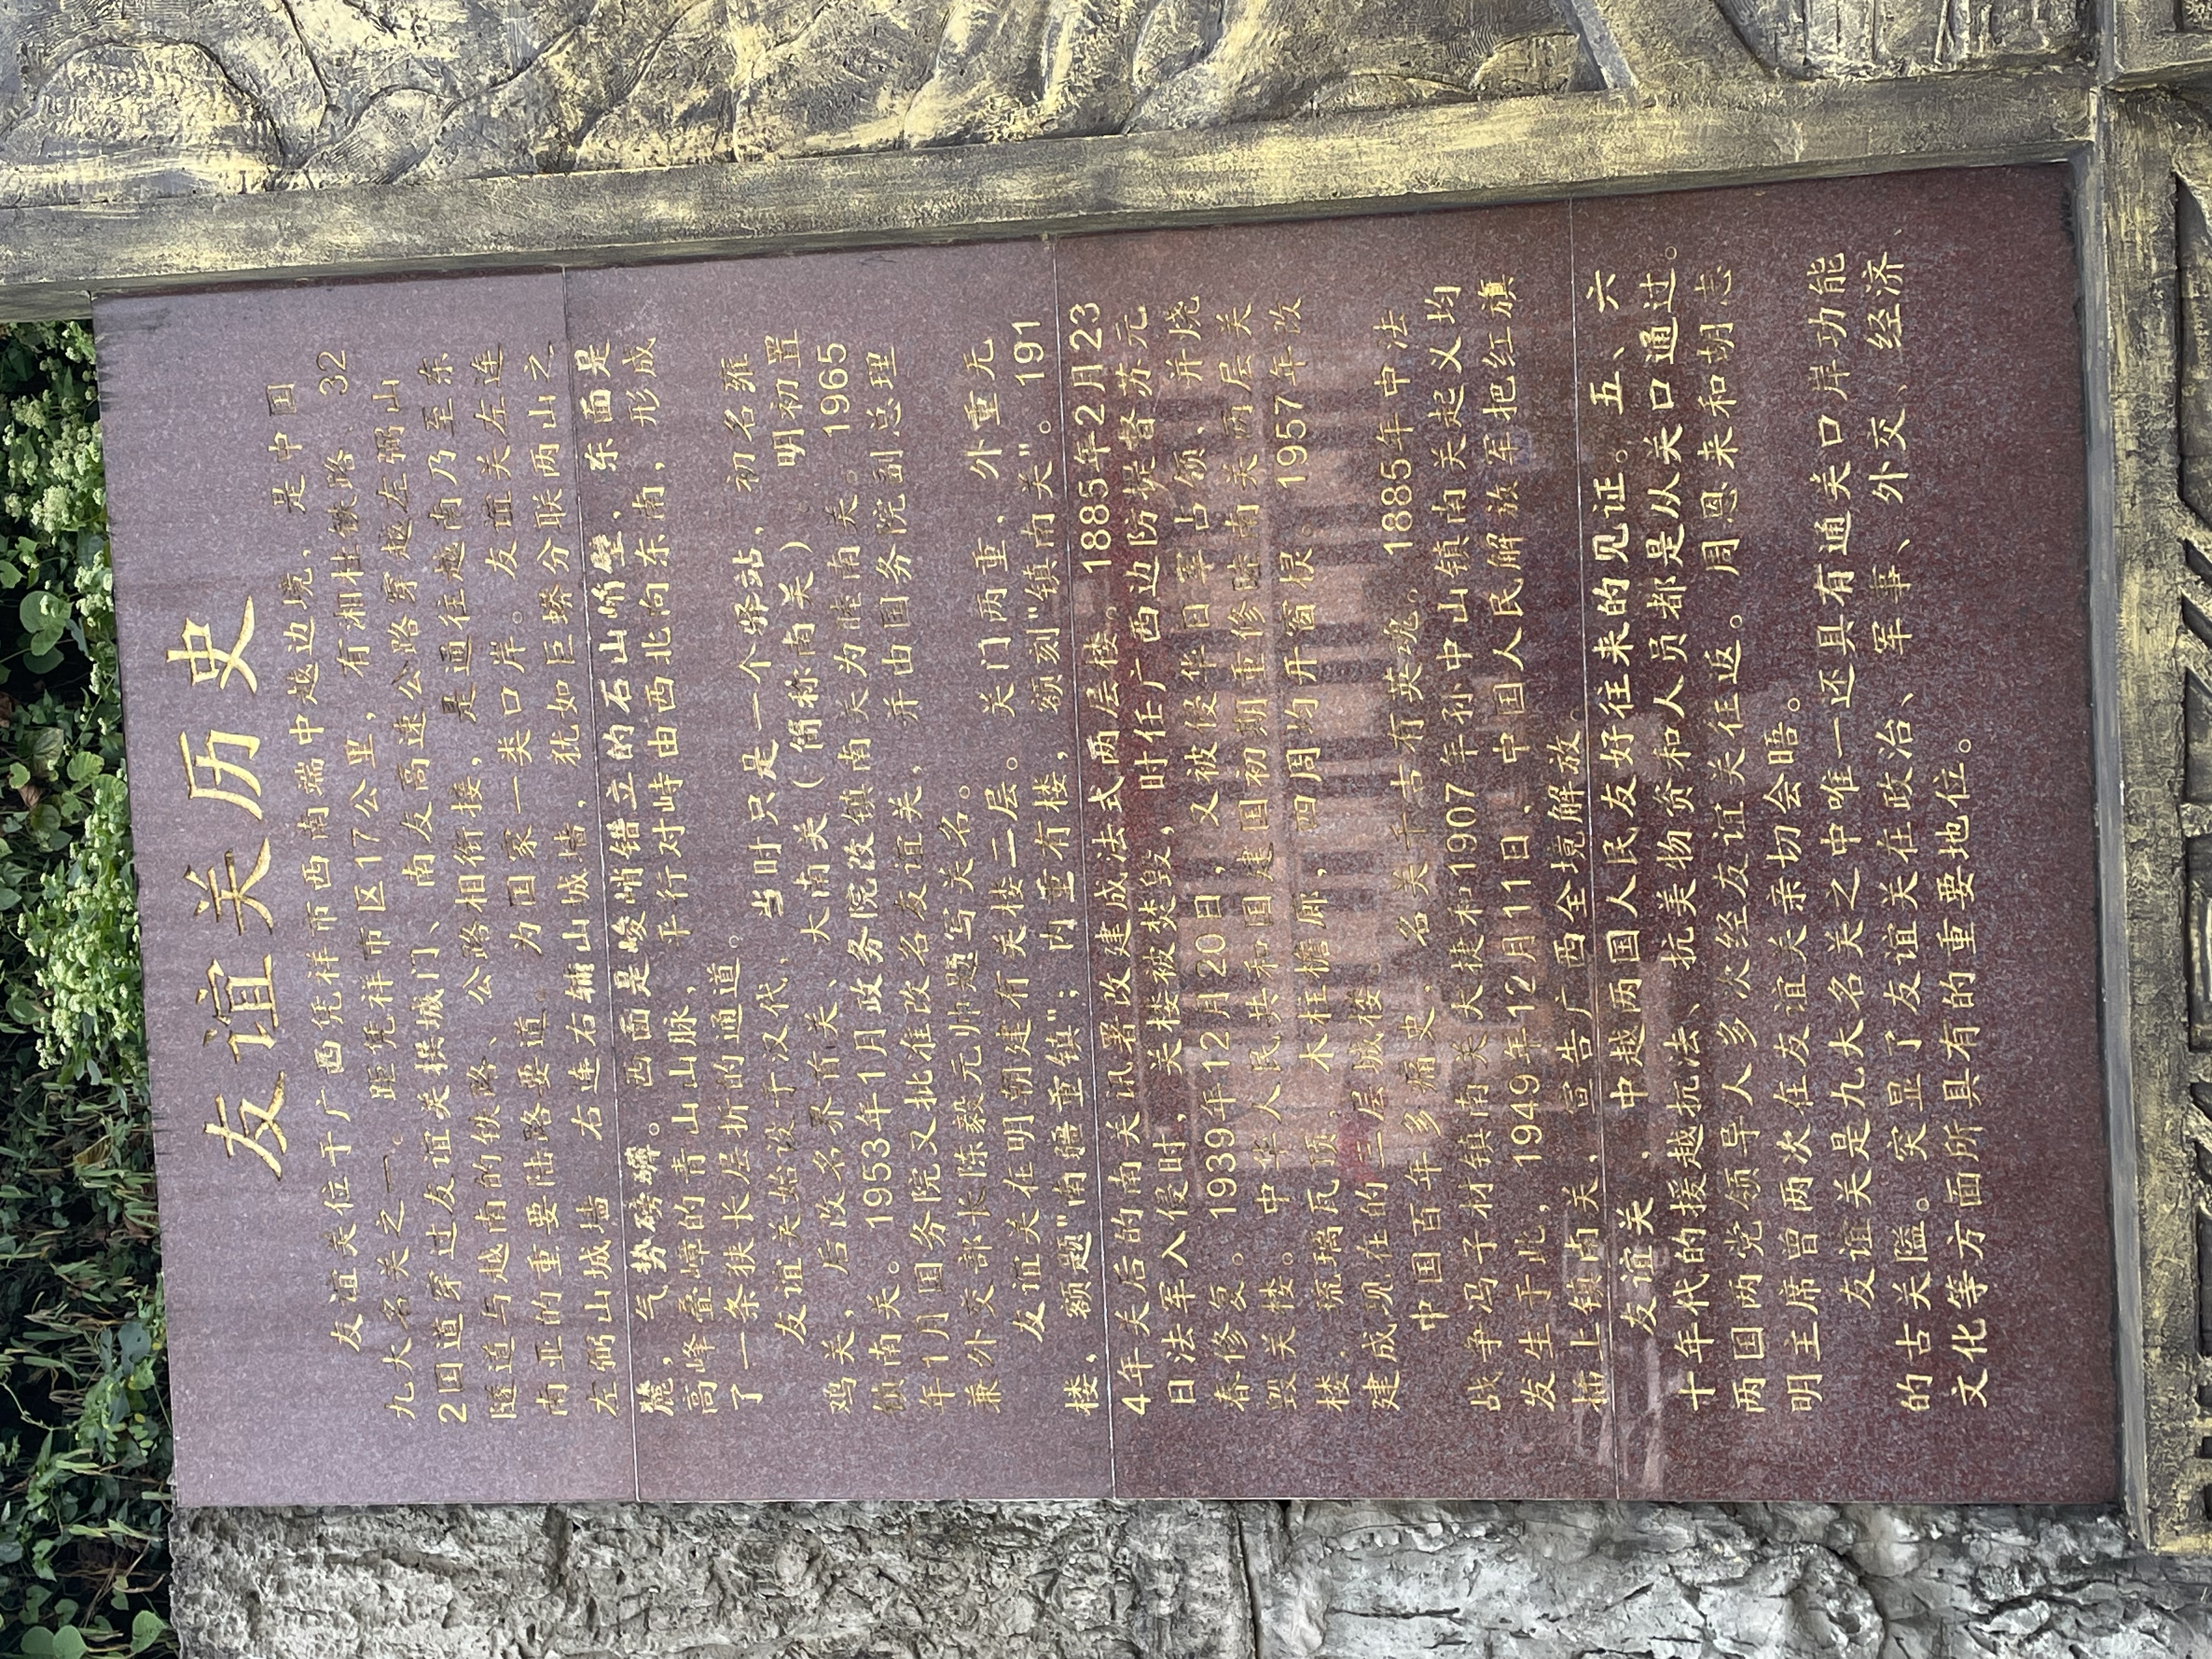 友谊关历史
友谊关位于广西凭祥市西南端中越边境，是中国
九大名关之一。距凭祥市区17公里，有湘桂铁路、32
2国道穿过友谊关拱城门、南友高速公路穿越左弼山
隧道与越南的铁路、公路相衔接，是通往越南乃至东
南亚的重要陆路要道。为国家一类口岸。友谊关左连
左弼山城墙，右连右辅山城墙，犹如巨蟒分联两山之
麓，气势磅礴。西面是峻峭错立的石山峭壁，东面是
高峰叠嶂的青山山脉，平行对峙由西北向东南，形成
了一条狭长层折的通道。
友谊关始设于汉代，当时只是一个驿站，初名雍
鸡关，后改名界首关、大南关（简称南关）明初置
镇南关。1953年1月政务院改镇南关为睦南关。1965
年1月国务院又批准改名友谊关，并由国务院副总理
兼外交部长陈毅元帅题写关名。
友谊关在明朝建有关楼二层。关门两重，外重无
楼，额题"南疆重镇"；内重有楼，额刻"镇南关"。191
4年关后的南关讯署改建成法式两层楼。1885年2月23
日法军入侵时，关楼被焚毁，时任广西边防提督苏元
春修复。1939年12月20日，又被侵华日军占领，并烧
毁关楼。中华人民共和国建国初期重修睦南关两层关
楼，琉璃瓦顶，木柱檐廊，四周均开窗棂。1957年改
建成现在的三层城楼。
中国百年多痛史，名关千古有英魂。1885年中法
战争冯子材镇南关大捷和1907年孙中山镇南关起义均
发生于此，1949年12月11日，中国人民解放军把红旗
插上镇南关，宣告广西全境解放。
友谊关，中越两国人民友好往来的见证。五、六
十年代的援越抗法、抗美物资和人员都是从关口通过。
两国两党领导人多次经友谊关往返。周恩来和胡志
明主席曾两次在友谊关亲切会晤。
友谊关是九大名关之中唯一还具有通关口岸功能
的古关隘。突显了友谊关在政治、军事、外交、经济
文化等方面所具有的重要地位。